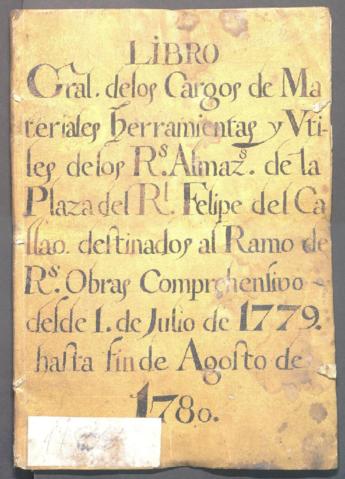 LiBRO
Gral. delos Cargos de Ma
teriales herramientas y Vti
les de los R.s Almaz.s de la
Plaza del R.l Felipe del Ca
llao. destinados al Ramo de
R.s Obras Comprehensivo
desde 1. de Julio de 1779.
hasta fin de Agosto de
1780.